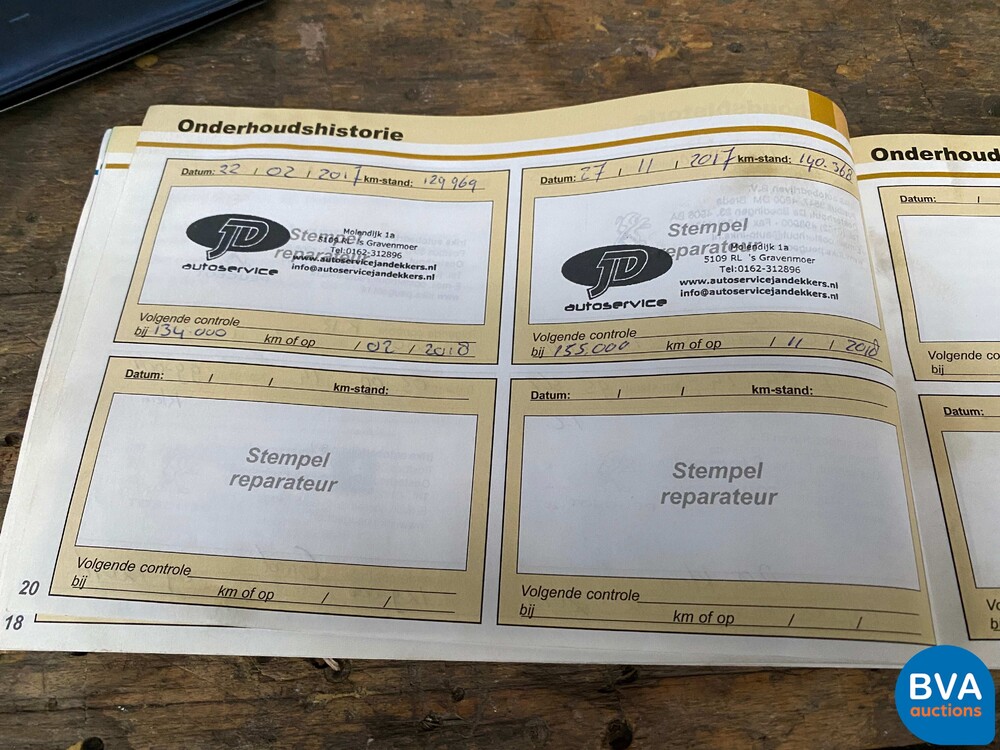 Onderhoudshistorie
Datum: 22 / 02 / 2017 km-stand: 129969
JD
autoservice
Stempel
reparateur
Molendijk 1a
5109 RL 's Gravenmoer
Tel:0162-312896
www.autoservicejandekkers.nl
info@autoservicejandekkers.nl
Volgende controle
bij 134.000 km of op / 02 / 2018
Datum: 27 / 11 / 2017 km-stand: 140.368
JD
autoservice
Stempel
reparateur
Molendijk 1a
5109 RL 's Gravenmoer
Tel:0162-312896
www.autoservicejandekkers.nl
info@autoservicejandekkers.nl
Volgende controle
bij 155.000 km of op / 11 / 2018
Datum: / / km-stand:
Stempel
reparateur
Volgende controle
bij km of op / /
Datum: / / km-stand:
Stempel
reparateur
Volgende controle
bij km of op / /
20
18
Onderhoud
Datum: /
Volgende co
bij
Datum:
b
BVA
auctions